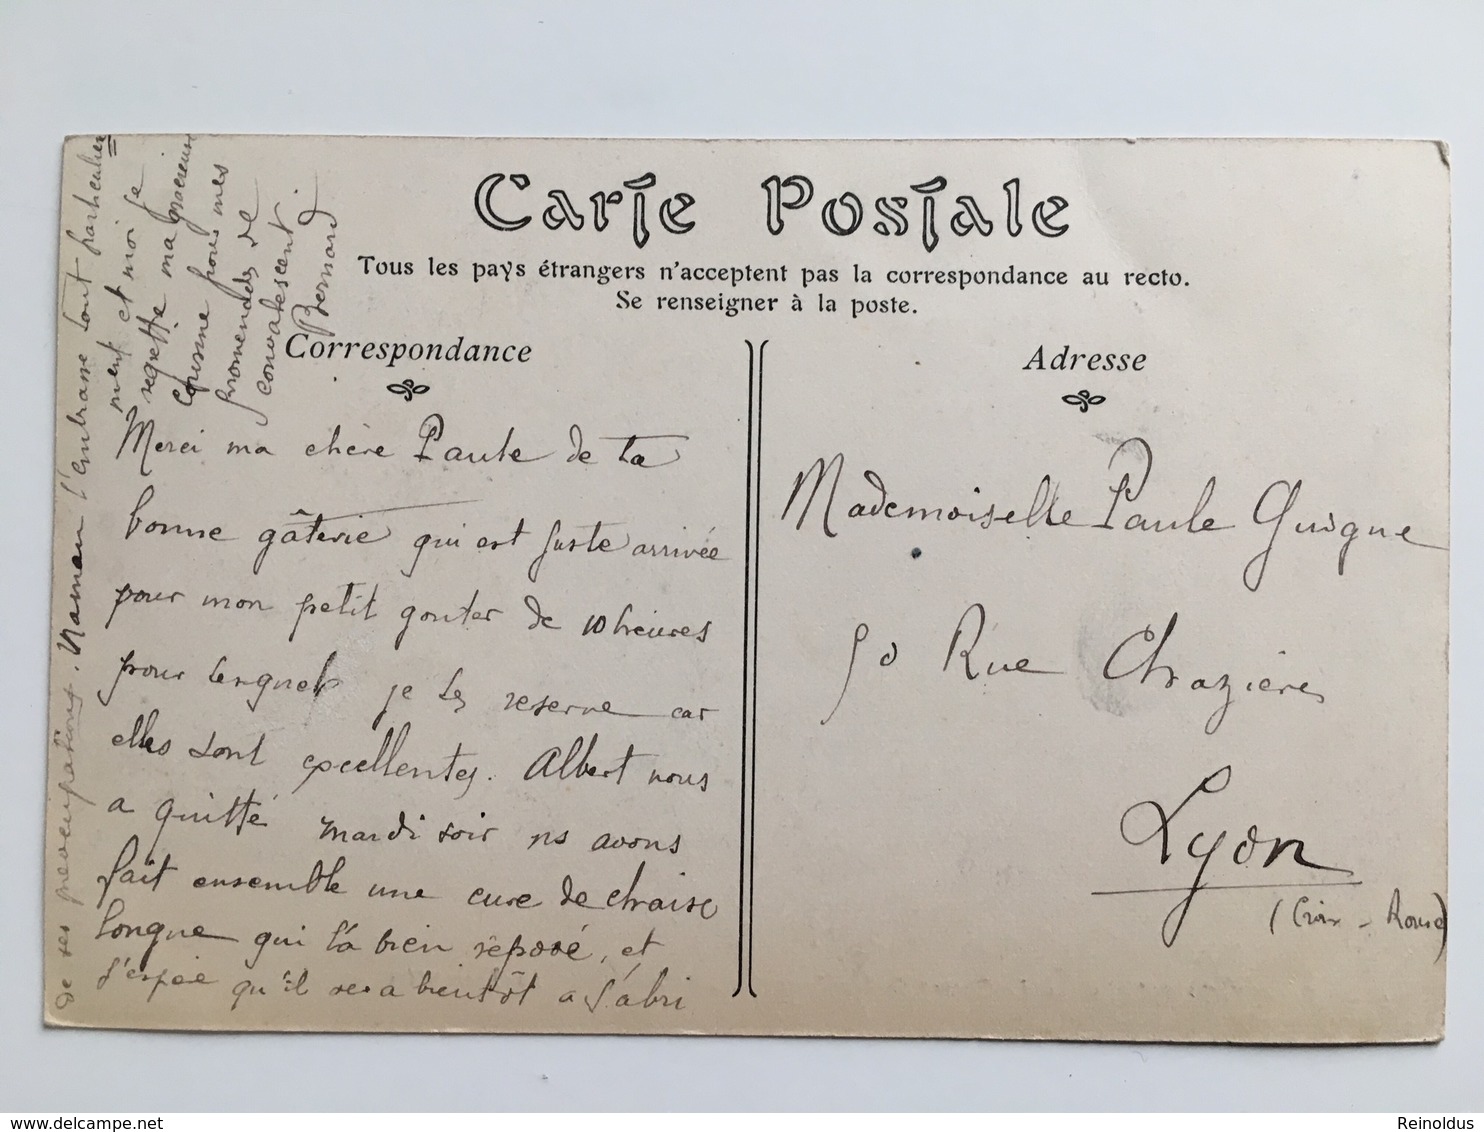 Carte Postale
Tous les pays étrangers n'acceptent pas la correspondance au recto.
Se renseigner à la poste.
Correspondance
Merci ma chère Paule de ta
bonne gâterie qui est juste arrivée
pour mon petit gouter de 10 heures
pour lequel je les reserve car
elles sont excellentes. Albert nous
a quitté mardi soir ns avons
fait ensemble une cure de chaise
longue qui l'a bien reposé, et
j'espère qu'il sera bientôt a l'abri
de ses préoccupations. Maman t'embrasse tout particulière
ment et moi je
regrette ma gracieuse
cousine pour mes
promenades de
convalescent.
Bernard
Adresse
Mademoiselle Paule Guigue
50 Rue Chazière
Lyon
(Croix-Rousse)
www.delcampe.net
Reinoldus